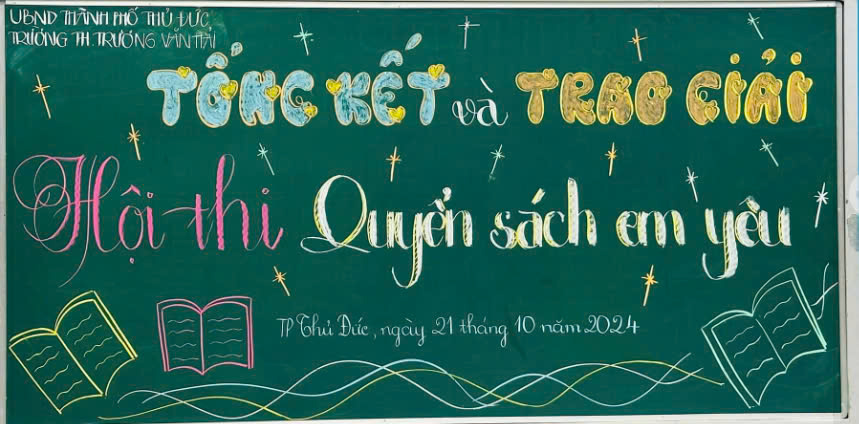 UBND THÀNH PHỐ THỦ ĐỨC
TRƯỜNG TH TRƯƠNG VĂN HẢI
TỔNG KẾT và TRAO GIẢI
Hội thi Quyển sách em yêu
TP Thủ Đức, ngày 21 tháng 10 năm 2024